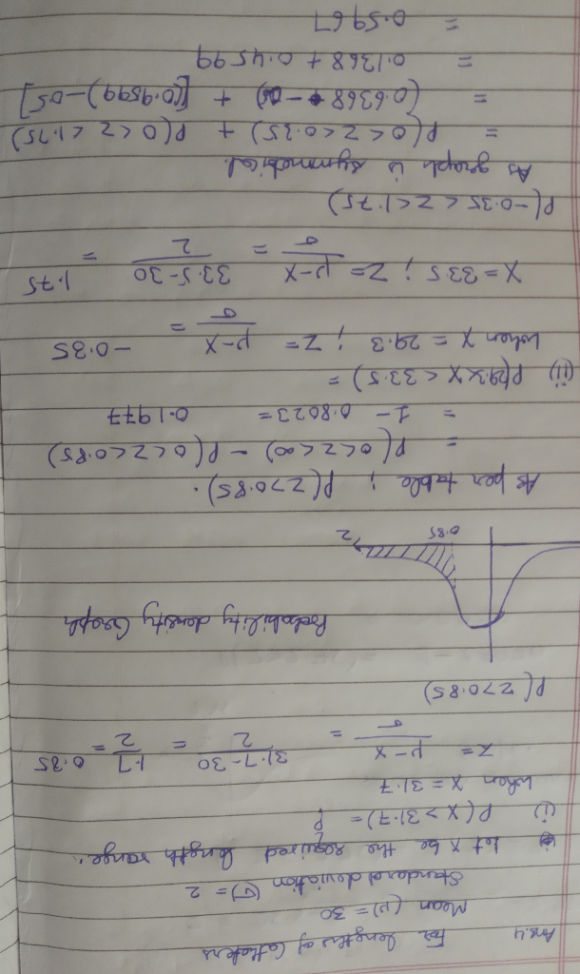 Ans.4 For lengths of Catheters
Mean (μ) = 30
Standard deviation (σ) = 2
Let X be the required length range.
(i) P(X > 31.7) = ?
when X = 31.7
Z = μ-X / σ = 31.7-30 / 2 = 1.7 / 2 = 0.85
P(Z > 0.85)
Probability density Graph
0.85 Z
As per table ; P(Z > 0.85).
= P(0 < Z < ∞) - P(0 < Z < 0.85)
= 1 - 0.8023 = 0.1977
(ii) P(29.3 < X < 33.5) =
When X = 29.3 ; Z = μ-X / σ = -0.35
X = 33.5 ; Z = μ-X / σ = 33.5-30 / 2 = 1.75
P(-0.35 < Z < 1.75)
As graph is symmetrical.
= P(0 < Z < 0.35) + P(0 < Z < 1.75)
= (0.6368 - 0) + [(0.9599) - 0.5]
= 0.1368 + 0.4599
= 0.5967